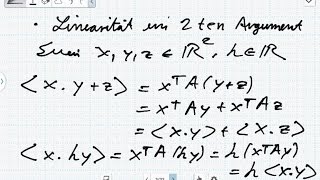 • Linearität im 2ten Argument
Seien x, y, z ∈ ℝ², h ∈ ℝ
<x . y + z> = xᵀA(y+z)
= xᵀAy + xᵀAz
= <x . y> + <x . z>
<x . hy> = xᵀA(hy) = h(xᵀAy)
= h <x . y>